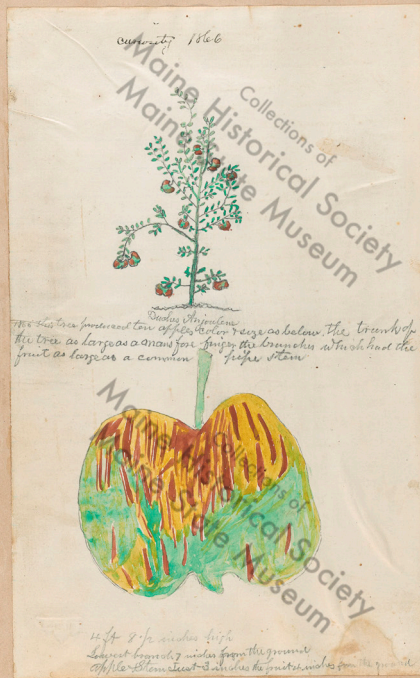 curiosity 1866
Collections of
Maine Historical Society
Maine State Museum
this tree produced ten apples color & size as below. the trunk of
the tree as large as a mans fore finger the branches which had the
fruit as large as a common pipe stem
Collections of
Maine Historical Society
Maine State Museum
4 ft 8 1/2 inches high
Lowest branch 9 inches from the ground
apple & Stem 3 inches the fruit inches from the ground